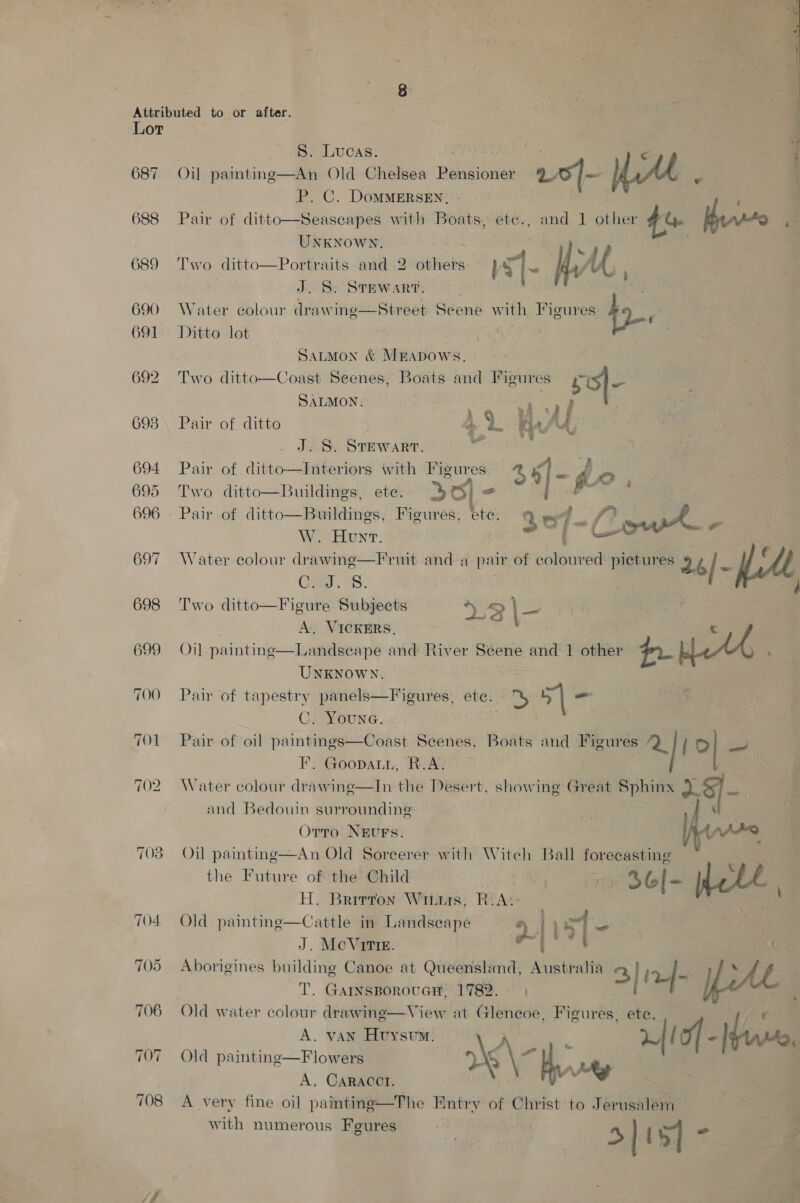 8
Attributed to or after.
Lot
S. Lucas.
687 Oil painting—An Old Chelsea Pensioner 20/- Hill
P. C. Dommersen.
688 Pair of ditto—Seascapes with Boats, etc., and 1 other
Unknown.
689 Two ditto—Portraits and 2 others 15/- Hill
J. S. Stewart.
690 Water colour drawing—Street Scene with Figures
691 Ditto lot
Salmon & Meadows.
692 Two ditto—Coast Scenes, Boats and Figures
Salmon.
693 Pair of ditto 42 Hill
J. S. Stewart.
694 Pair of ditto—Interiors with Figures 35/- do
695 Two ditto—Buildings, etc. 30/-
696 Pair of ditto—Buildings, Figures, etc.
W. Hunt.
697 Water colour drawing—Fruit and a pair of coloured pictures 26/- Hill
C. J. S.
698 Two ditto—Figure Subjects 22/-
A. Vickers.
699 Oil painting—Landscape and River Scene and 1 other Hill
Unknown.
700 Pair of tapestry panels—Figures, etc. 35/-
C. Young.
701 Pair of oil paintings—Coast Scenes, Boats and Figures 2/10/-
F. Goodall, R.A.
702 Water colour drawing—In the Desert, showing Great Sphinx
and Bedouin surrounding
Otto Neufs.
703 Oil painting—An Old Sorcerer with Witch Ball forecasting
the Future of the Child 36/- Hill
H. Britton Willis, R.A.
704 Old painting—Cattle in Landscape 2/15/-
J. McVitie.
705 Aborigines building Canoe at Queensland, Australia 3/12/- Hill
T. Gainsborough, 1782.
706 Old water colour drawing—View at Glencoe, Figures, etc.
A. van Huysum. 2/10/-
707 Old painting—Flowers
A. Caracci.
708 A very fine oil painting—The Entry of Christ to Jerusalem
with numerous Fgures 3/15/-